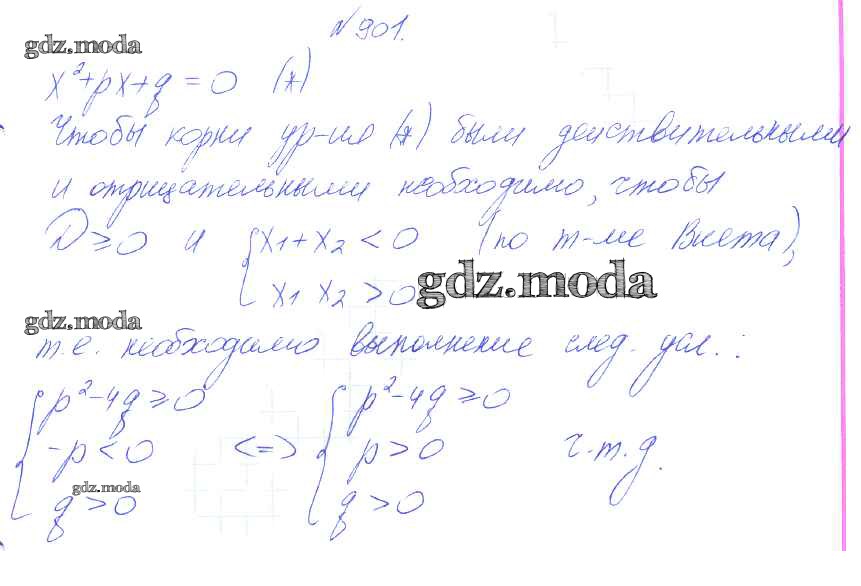 № 901.
gdz.moda
x²+px+q = 0 (*)
Чтобы корни ур-ия (*) были действительными
и отрицательными необходимо, чтобы
D ≥ 0 и { x₁+x₂ < 0 (по т-ме Виета),
x₁ x₂ > 0
gdz.moda
gdz.moda
т.е. необходимо выполнение след. усл.:
{ p²-4q ≥ 0 { p²-4q ≥ 0
-p < 0 <=> p > 0 ч.т.д.
gdz.moda
q > 0 q > 0